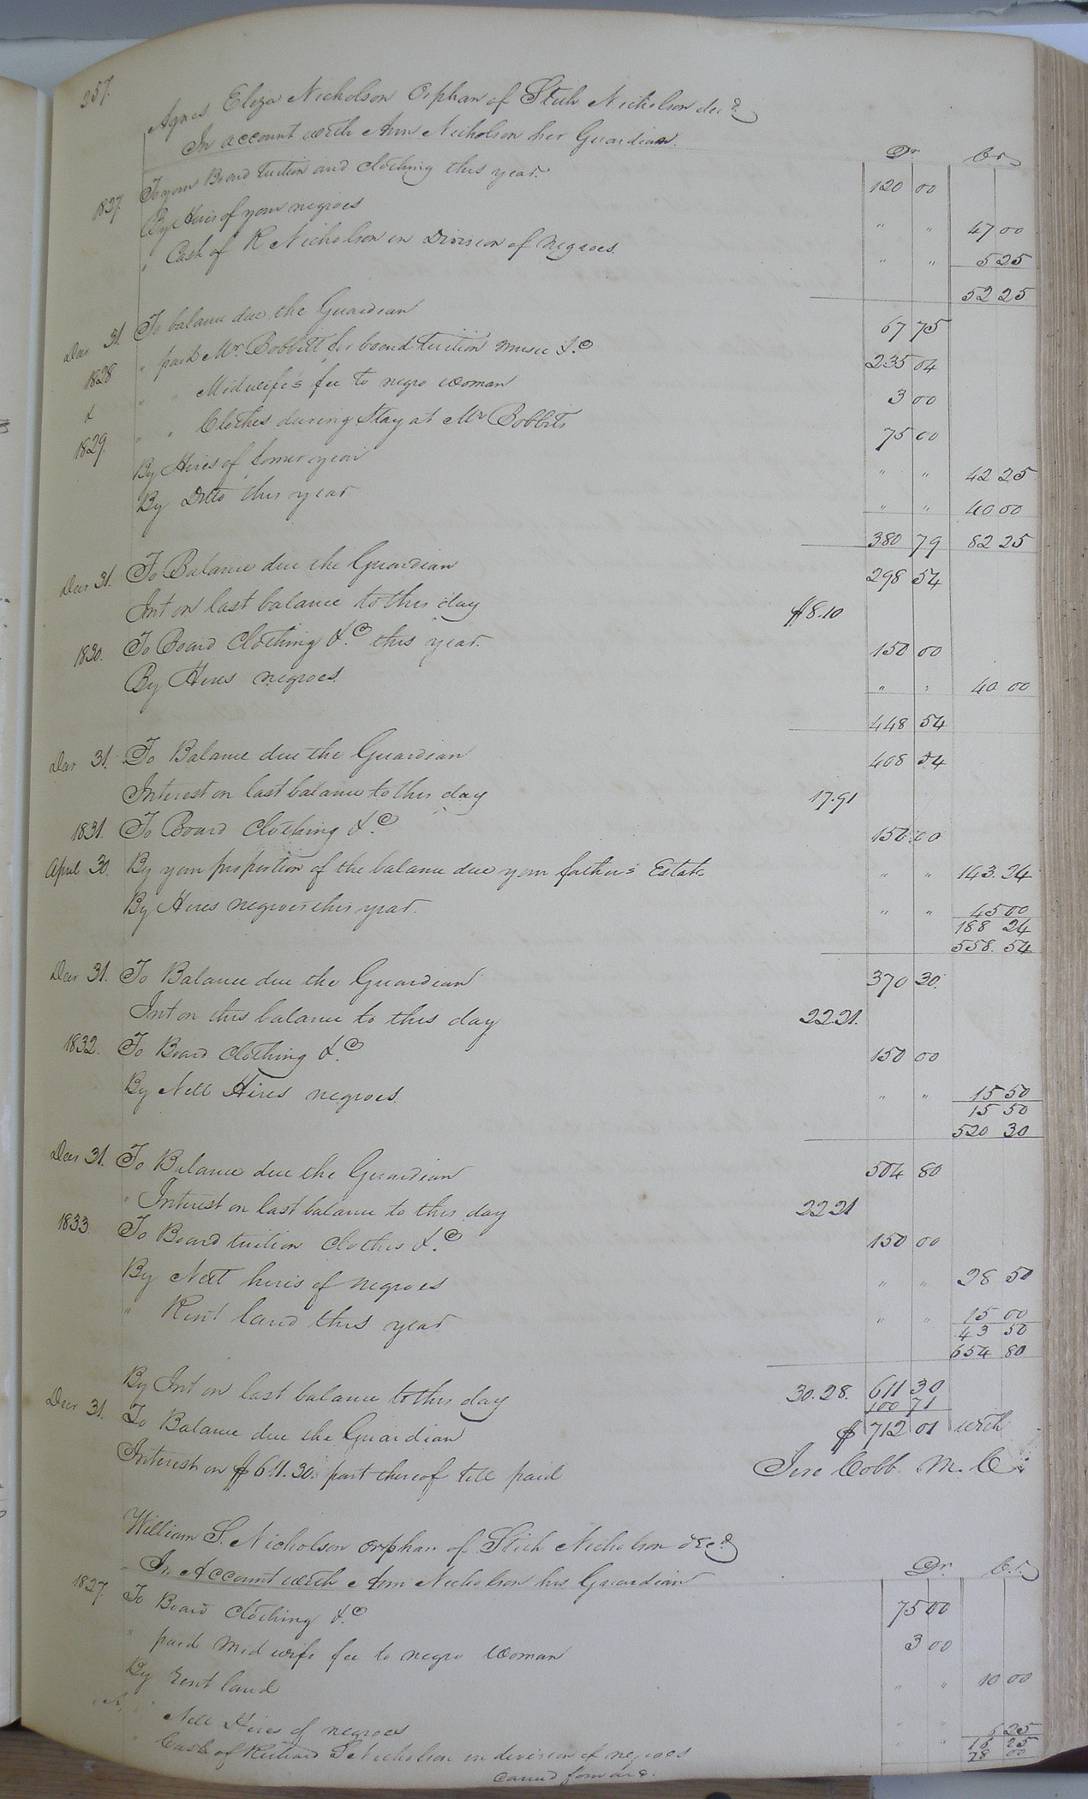 257.
Agnes Eliza Nicholson Orphan of Stith Nicholson decd
In account with Ann Nicholson her Guardian.
Dr Cr
1827. To your Board tuition and clothing this year. 120 00
By Hires of your negroes " " 47 00
" Cash of R Nicholson in Division of negroes " " 5 25
52 25
Decr 31. To balance due the Guardian 67 75
1828 " paid Mr. Bobbitt for board tuition music &c 235 04
& " " Midwife's fee to negro woman 3 00
1829. " " Clothes during Stay at Mr Bobbits 75 00
By Hires of former year " " 42 25
By Ditto this year " " 40 00
380 79 82 25
Decr 31. To Balance due the Guardian 298 54
Int on last balance to this day $8.10
1830. To Board Clothing &c this year. 150 00
By Hires negroes " " 40 00
448 54
Decr 31. To Balance due the Guardian 408 54
Interest on last balance to this day 17.91
1831. To Board Clothing &c 150 00
April 30. By your proportion of the balance due your father's Estate " " 143.24
By Hires negroes this year. " " 45 00
188 24
558. 54
Decr 31. To Balance due the Guardian 370 30.
Int on this balance to this day 22 21.
1832. To Board Clothing &c 150 00
By Nett Hires negroes. " " 15 50
15 50
520 30
Decr 31. To Balance due the Guardian 504 80
" Interest on last balance to this day 22 21
1833 To Board tuition Clothes &c 150 00
By Nett hires of negroes " " 28 50
" Rent land this year " " 15 00
43 50
654 80
By Int on last balance to this day 30.28. 611 30
100 71
Decr 31. To Balance due the Guardian $ 712 01 with
Interest on $611.30. part thereof till paid Jere Cobb. M. C.
William S. Nicholson orphan of Stith Nicholson decd
In Account with Ann Nicholson his Guardian Dr. Cr.
1827 To Board Clothing &c 75 00
" paid midwife fee to negro woman 3 00
By rent land " " 10 00
" Nett Hires of negroes " "
" Cash of Richard S Nicholson in division of negroes " " 6 25
16 25
78 00
carried forward.